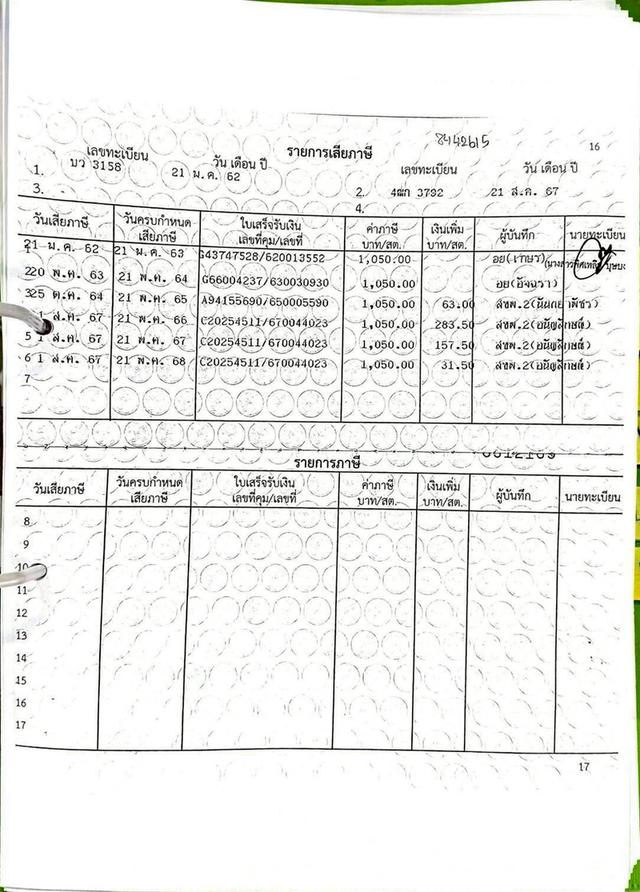 8442615
16
รายการเสียภาษี
เลขทะเบียน วัน เดือน ปี เลขทะเบียน วัน เดือน ปี
1. บว 3158 21 ม.ค. 62
3. 2. 4ฒก 3792 21 ส.ค. 67
4.
วันเสียภาษี วันครบกำหนดเสียภาษี ใบเสร็จรับเงิน เลขที่คุม/เลขที่ ค่าภาษี บาท/สต. เงินเพิ่ม บาท/สต. ผู้บันทึก นายทะเบียน
21 ม.ค. 62 21 ม.ค. 63 G43747528/620013552 1,050.00 อย(เกษร)
220 พ.ค. 63 21 พ.ค. 64 G66004237/630030930 1,050.00 อย(อัจฉรา)
325 ต.ค. 64 21 พ.ค. 65 A94155690/650005590 1,050.00 63.00 สขพ.2
1 ส.ค. 67 21 พ.ค. 66 C20254511/670044023 1,050.00 283.50 สขพ.2
5 1 ส.ค. 67 21 พ.ค. 67 C20254511/670044023 1,050.00 157.50 สขพ.2
6 1 ส.ค. 67 21 พ.ค. 68 C20254511/670044023 1,050.00 31.50 สขพ.2
7
รายการภาษี
วันเสียภาษี วันครบกำหนดเสียภาษี ใบเสร็จรับเงิน เลขที่คุม/เลขที่ ค่าภาษี บาท/สต. เงินเพิ่ม บาท/สต. ผู้บันทึก นายทะเบียน
8
9
10
11
12
13
14
15
16
17
17